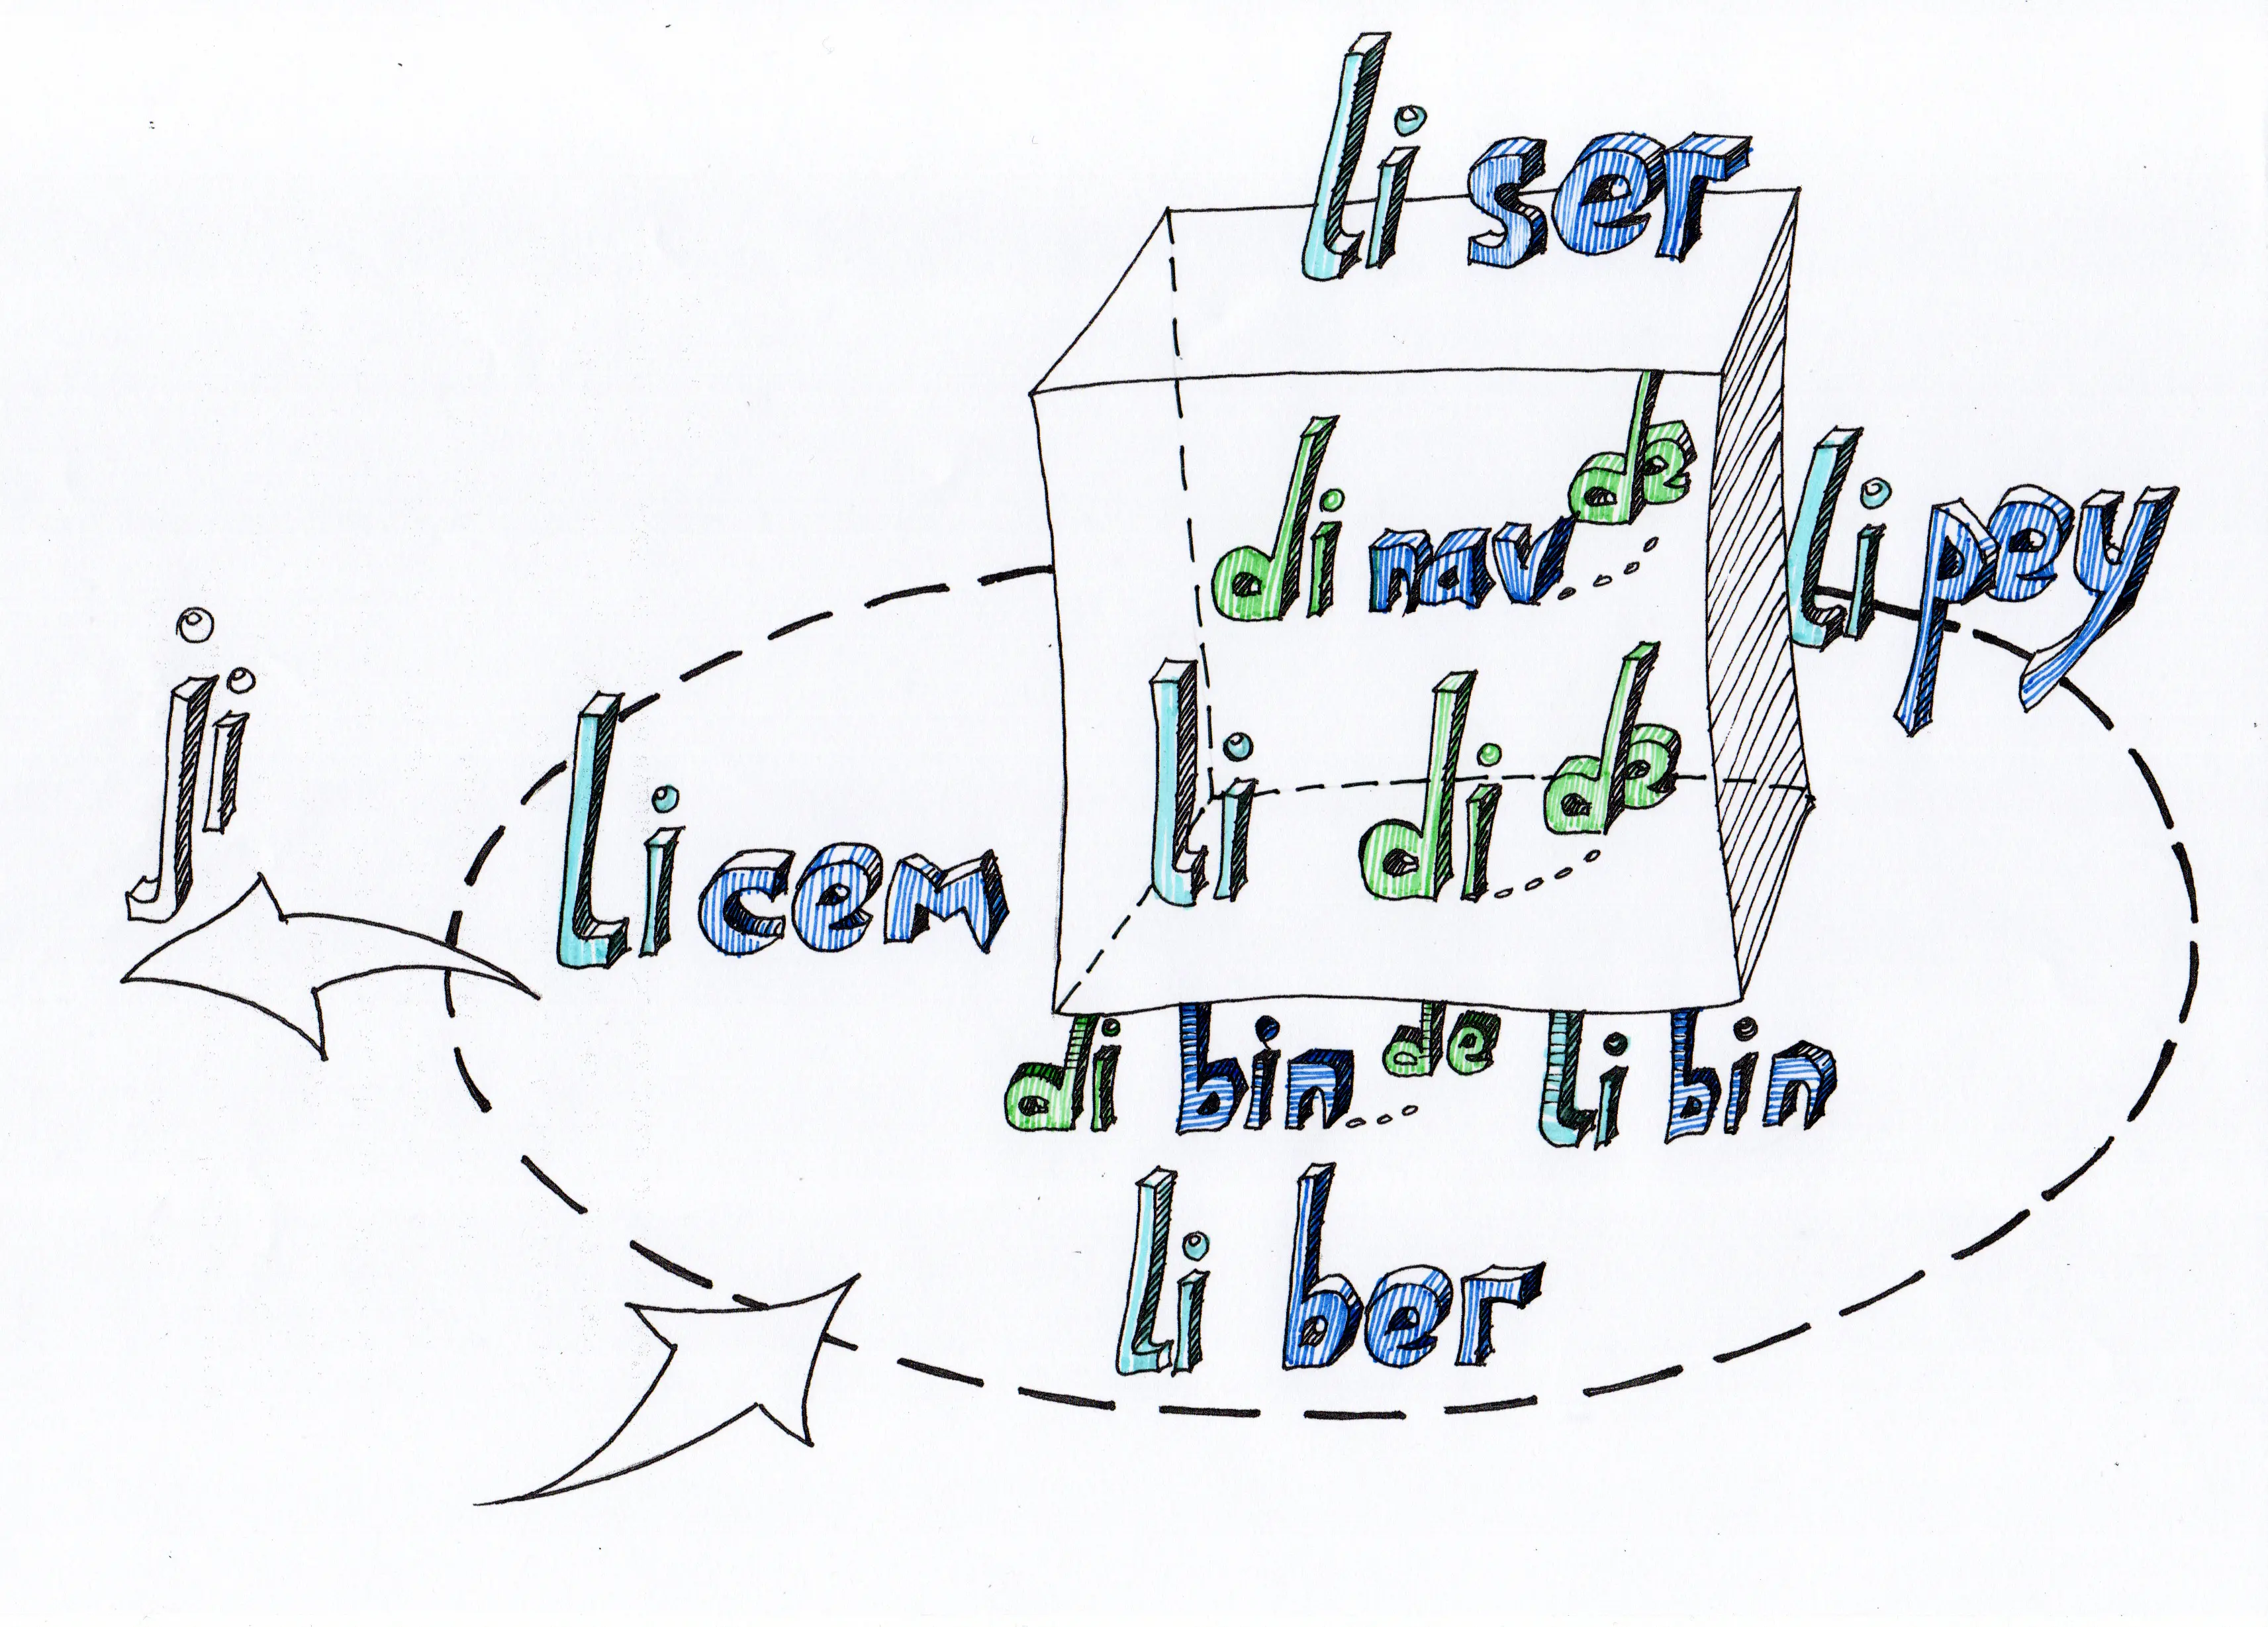 li ser
di nav de
li pey
ji
li di de
li cem
di bin de
li bin
li ber